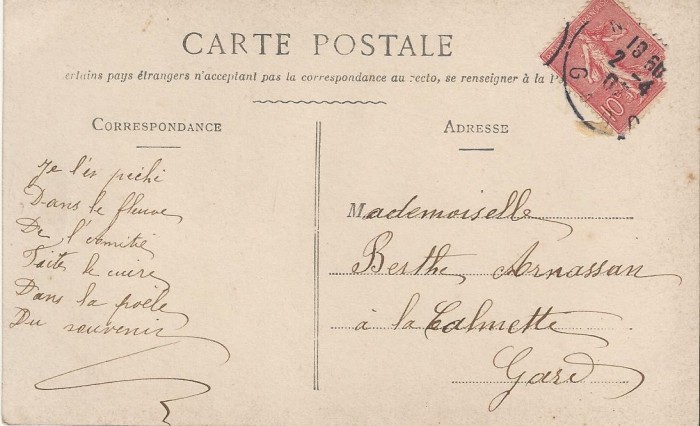 CARTE POSTALE
ertains pays étrangers n'acceptant pas la correspondance au recto, se renseigner à la P
CORRESPONDANCE
Je l'ai pêché
Dans le fleuve
De l'amitié
Faites le cuire
Dans la poële
Du souvenir
ADRESSE
Mademoiselle
Berthe Arnassan
à la Calmette
Gard
10